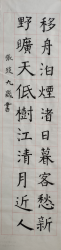 移舟泊煙渚日暮客愁新
野曠天低樹江清月近人
九歲書